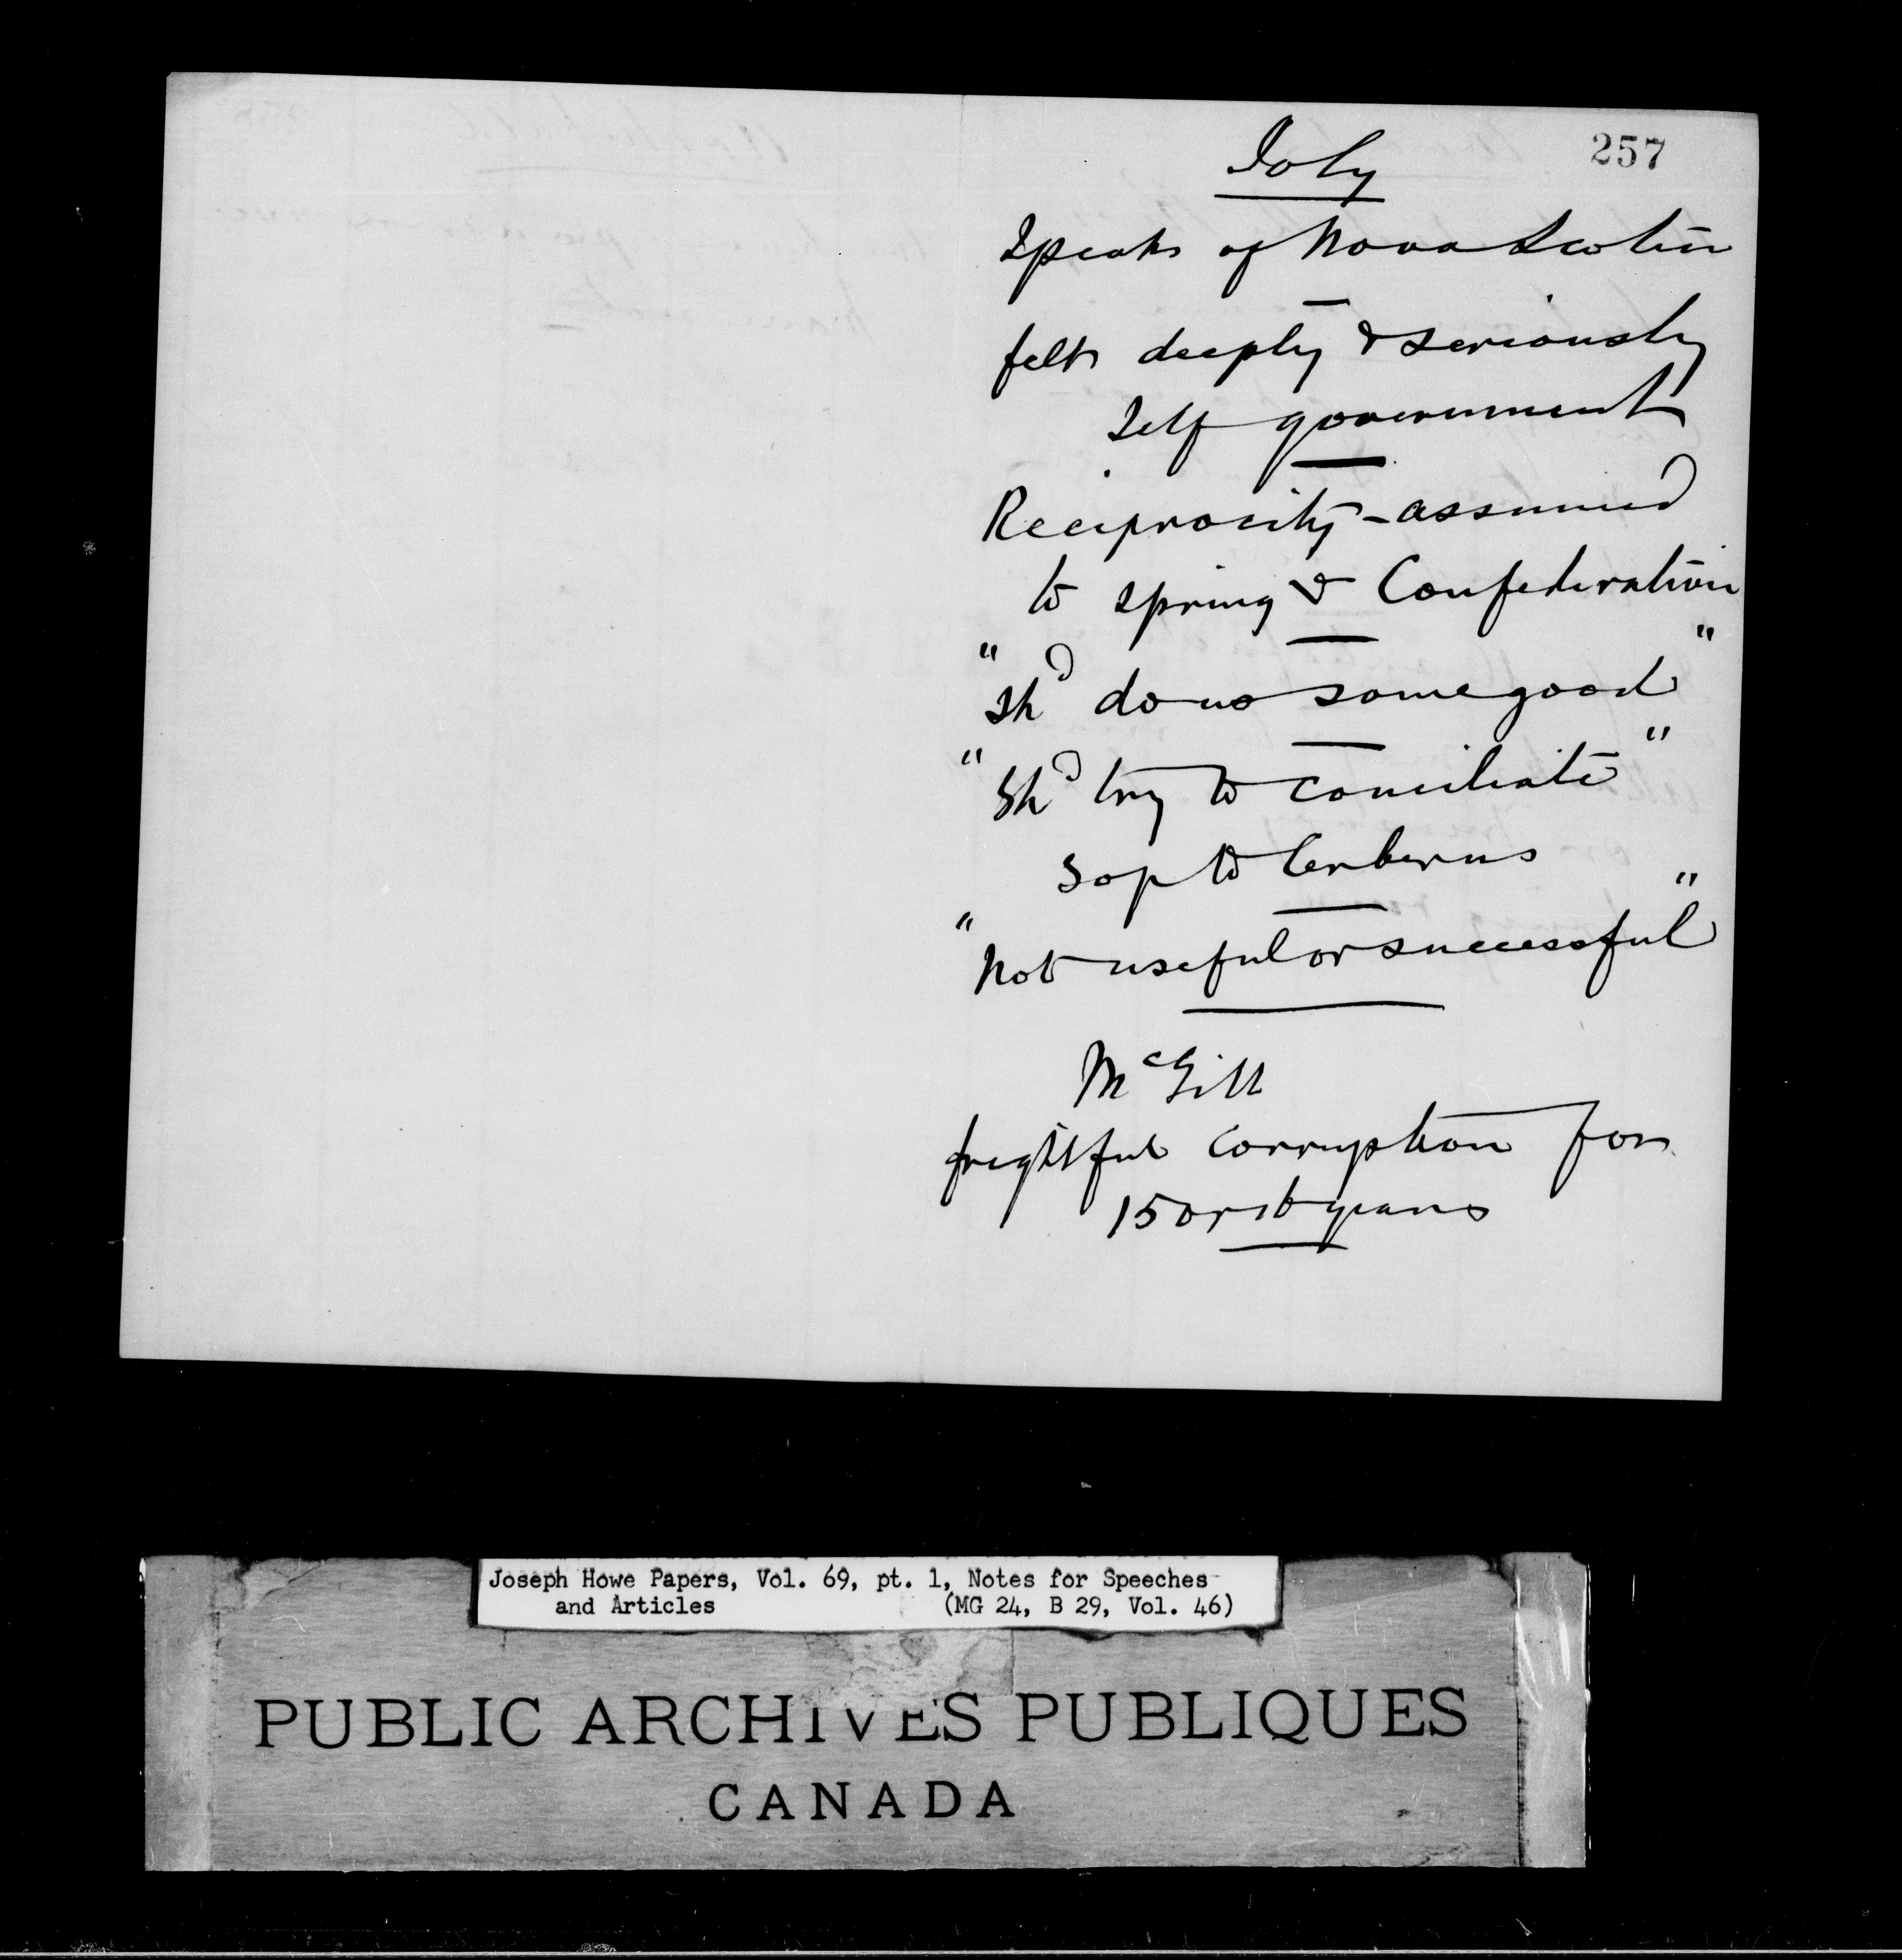 257
Joly
Speaks of Nova Scotia
felt deeply & seriously
Self government
Reciprocity - assumed
to spring & Confederation
"Shd do us some good"
"Shd try to conciliate"
Sop to Cerberus
"Not useful or successful"
McGill
frightful corruption for
15 or 16 years
Joseph Howe Papers, Vol. 69, pt. 1, Notes for Speeches
and Articles (MG 24, B 29, Vol. 46)
PUBLIC ARCHIVES PUBLIQUES
CANADA